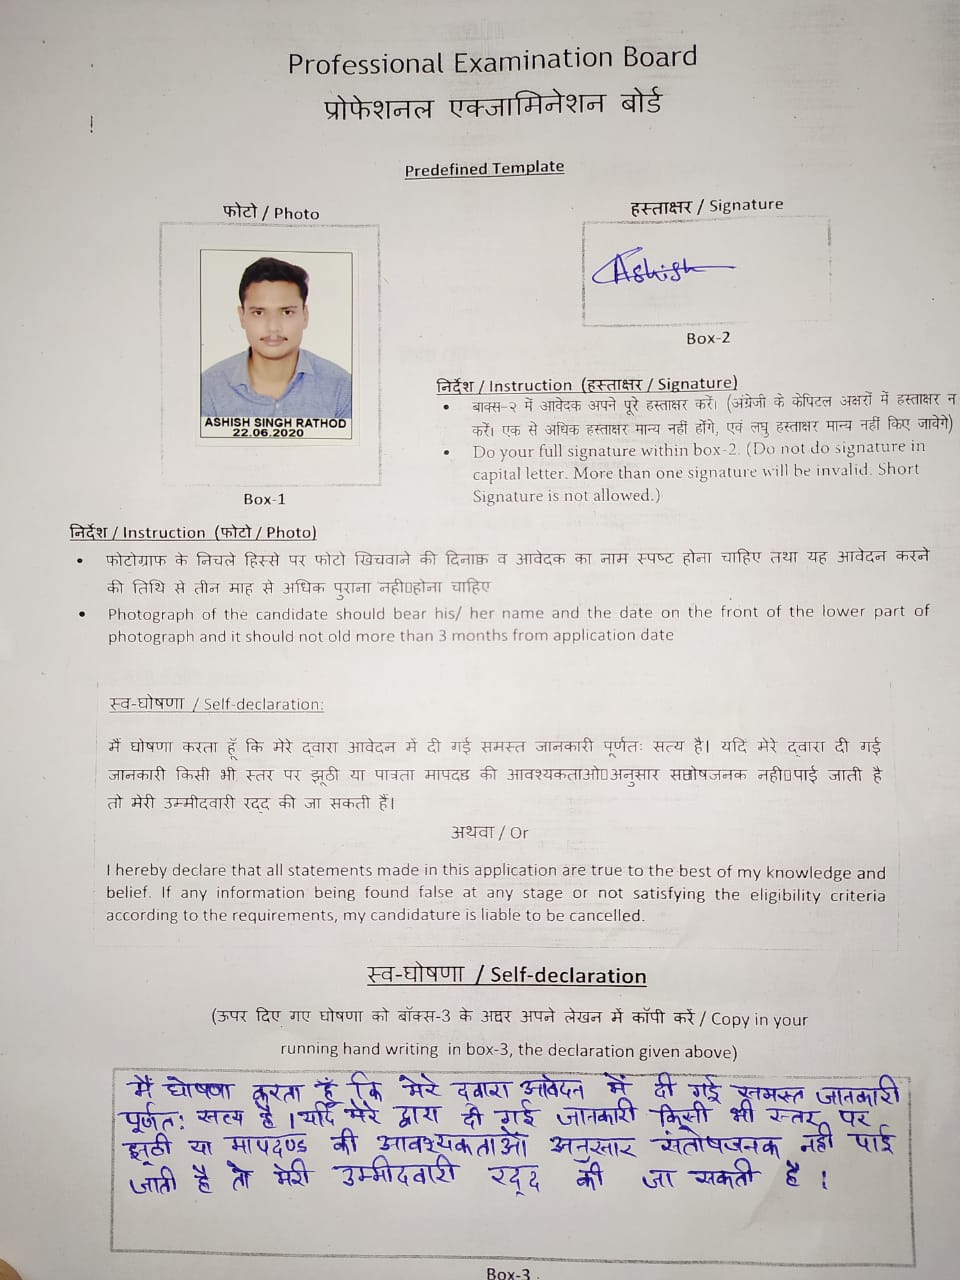 Professional Examination Board
प्रोफेशनल एक्जामिनेशन बोर्ड
Predefined Template
फोटो / Photo
ASHISH SINGH RATHOD
22.06.2020
Box-1
हस्ताक्षर / Signature
Ashish
Box-2
निर्देश / Instruction (हस्ताक्षर / Signature)
• बाक्स-२ में आवेदक अपने पूरे हस्ताक्षर करें। (अंग्रेजी के केपिटल अक्षरों में हस्ताक्षर न
करें। एक से अधिक हस्ताक्षर मान्य नहीं होंगे, एवं लघु हस्ताक्षर मान्य नहीं किए जावेगे)
• Do your full signature within box-2. (Do not do signature in
capital letter. More than one signature will be invalid. Short
Signature is not allowed.)
निर्देश / Instruction (फोटो / Photo)
• फोटोग्राफ के निचले हिस्से पर फोटो खिचवाने की दिनाक व आवेदक का नाम स्पष्ट होना चाहिए तथा यह आवेदन करने
की तिथि से तीन माह से अधिक पुराना नही▯होना चाहिए
• Photograph of the candidate should bear his/ her name and the date on the front of the lower part of
photograph and it should not old more than 3 months from application date
स्व-घोषणा / Self-declaration:
मैं घोषणा करता हूँ कि मेरे द्वारा आवेदन में दी गई समस्त जानकारी पूर्णतः सत्य है। यदि मेरे द्वारा दी गई
जानकारी किसी भी स्तर पर झूठी या पात्रता मापदड की आवश्यकताओ▯अनुसार सतोषजनक नही▯पाई जाती है
तो मेरी उम्मीदवारी रद्द की जा सकती हैं।
अथवा / Or
I hereby declare that all statements made in this application are true to the best of my knowledge and
belief. If any information being found false at any stage or not satisfying the eligibility criteria
according to the requirements, my candidature is liable to be cancelled.
स्व-घोषणा / Self-declaration
(ऊपर दिए गए घोषणा को बॉक्स-3 के अदर अपने लेखन में कॉपी करें / Copy in your
running hand writing in box-3, the declaration given above)
मैं घोषणा करता हूँ कि मेरे दवारा आवेदन में दी गई समस्त जानकारी
पूर्णत: सत्य है । यदि मेरे द्वारा दी गई जानकारी किसी भी स्तर पर
झूठी या मापदण्ड की आवश्यकताओं अनुसार संतोषजनक नही पाई
जाती है तो मेरी उम्मीदवारी रद्द की जा सकती है ।
Box-3